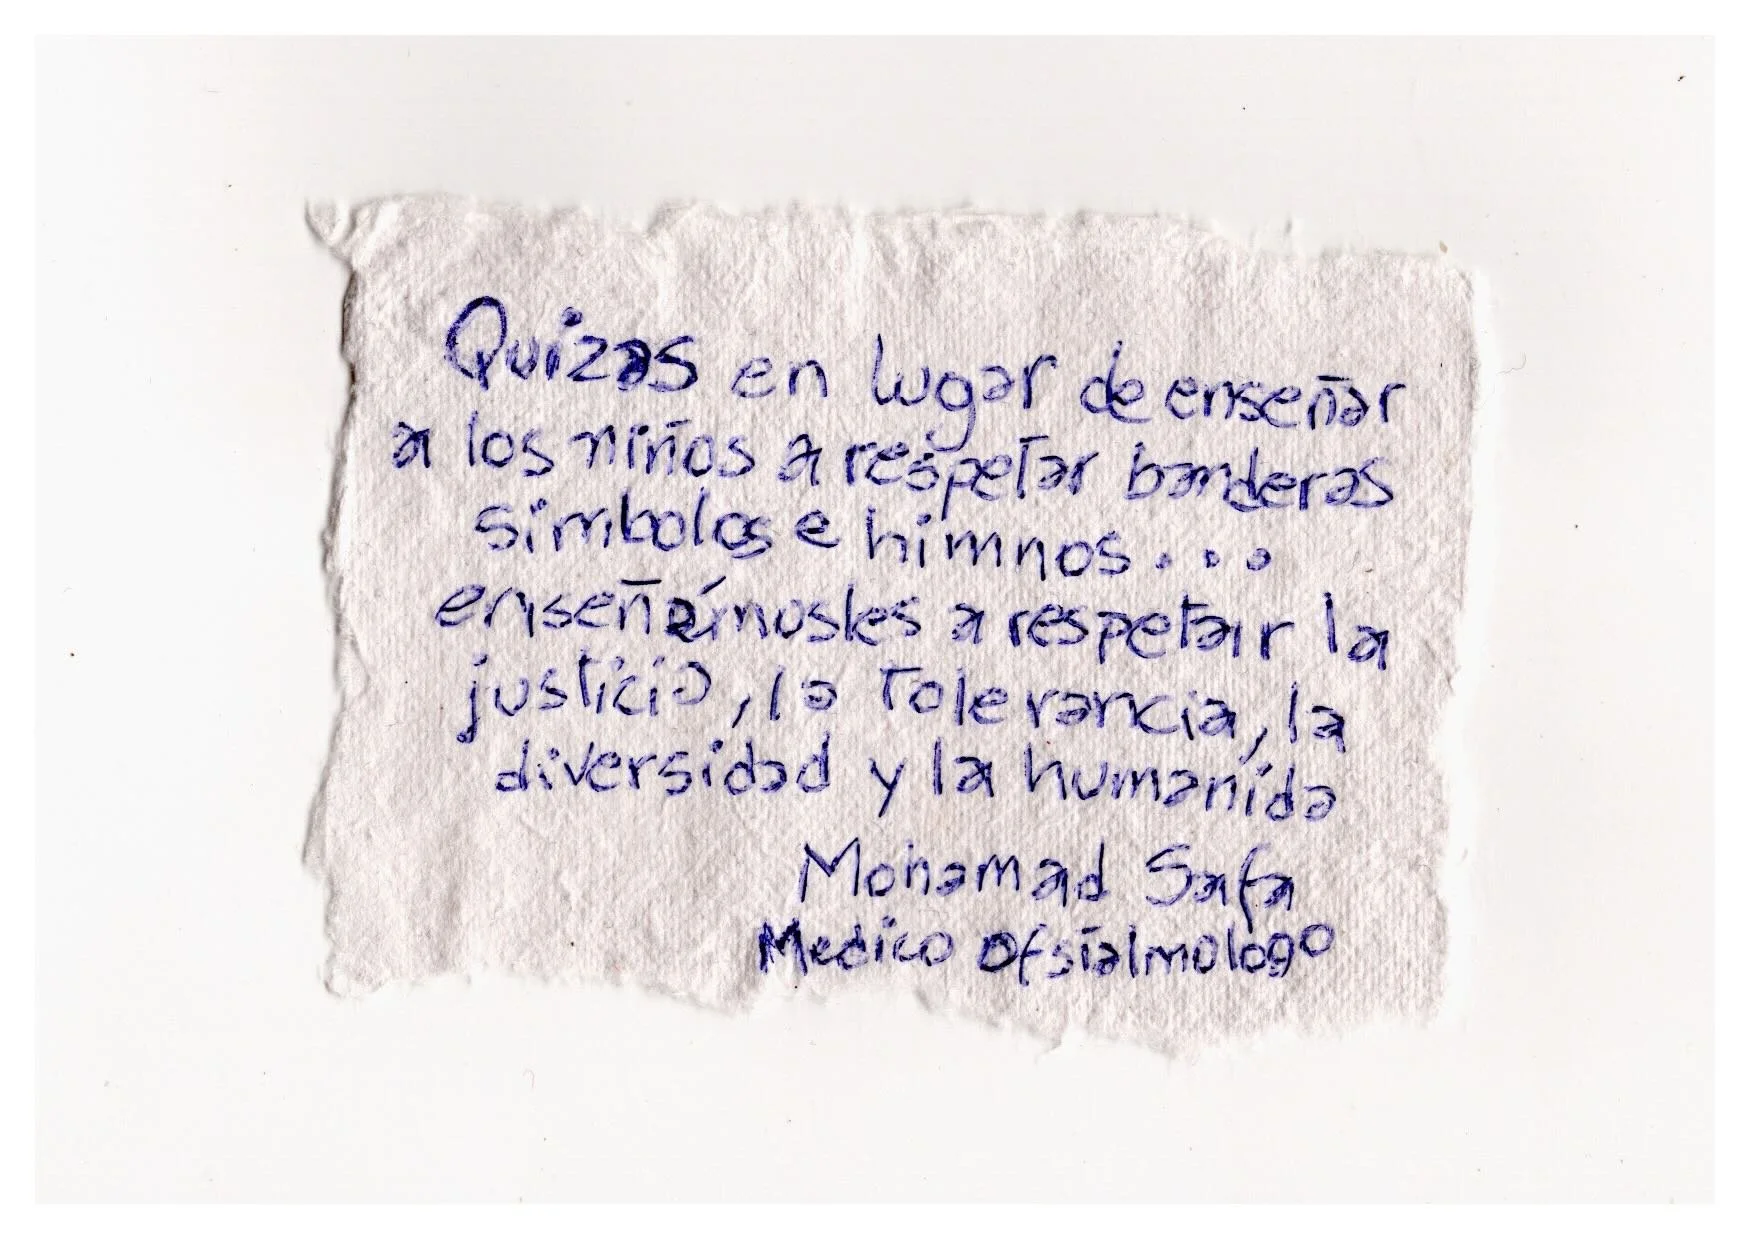 Quizas en lugar de enseñar
a los niños a respetar banderas
simbolos e himnos...
enseñámosles a respetar la
justicia, la tolerancia, la
diversidad y la humanida
Mohamad Safa
Medico Ofsialmologo